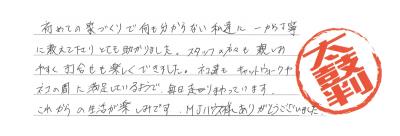 初めての家づくりで何も分からない私達に一から丁寧
に教えて下さりとても助かりました。スタッフの方々も親しみ
やすく打合せも楽しくできました。ネコ達もキャットウォークや
ネコの間に満足しているようで、毎日走りまわっています。
これからの生活が楽しみです。MJハウス様ありがとうございました
太鼓判